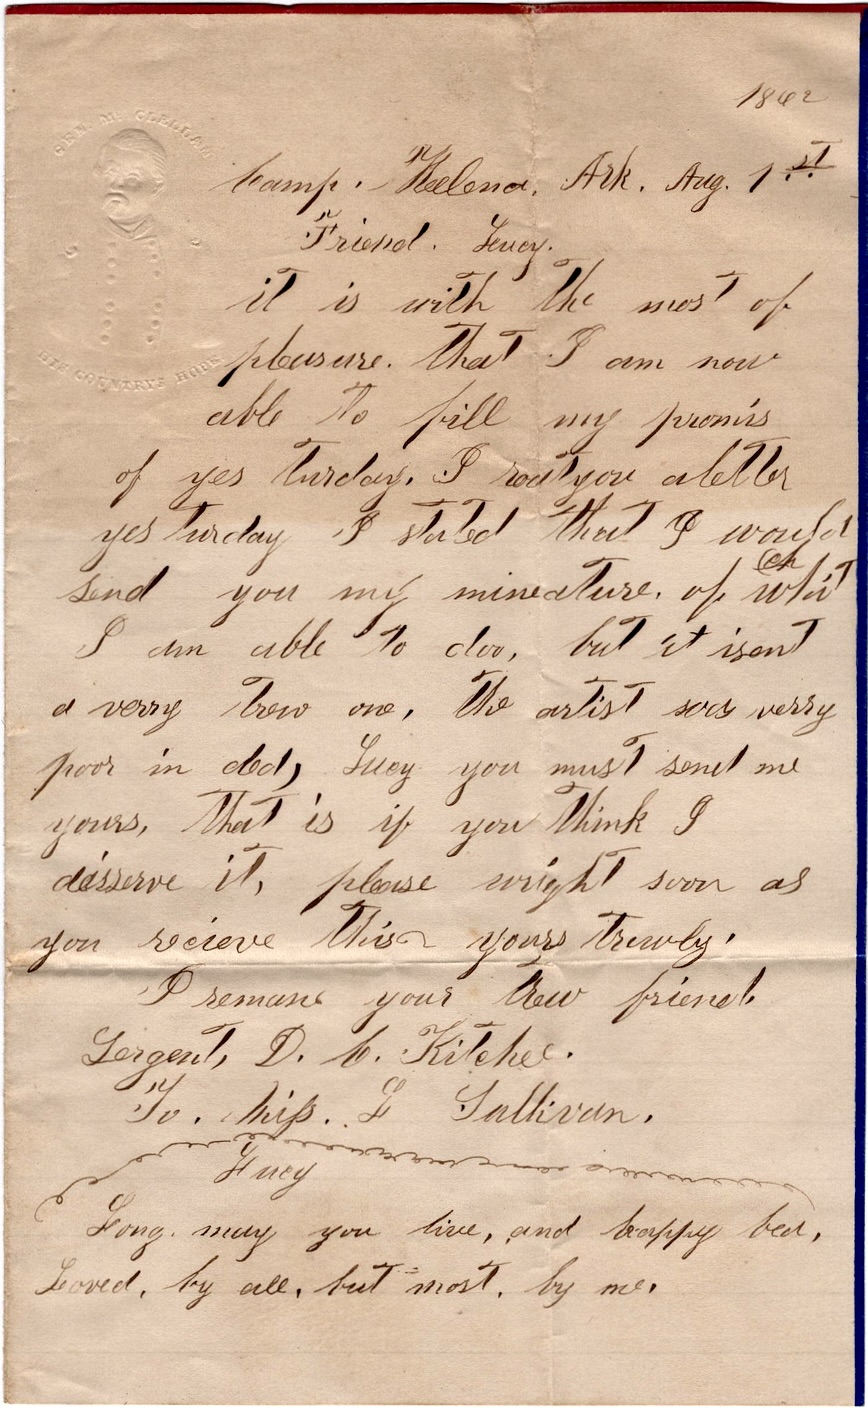 1862
GEN. Mc CLELLAN
HIS COUNTRYS HOPE
Camp. Helena, Ark. Aug. 1st
Friend. Lucy.
it is with the most of
pleasure. that I am now
able to fill my promis
of yes turday. I roat you a letter
yes turday I stated that I would
send you my mineature. of what
I am able to doo, but it isent
a verry trew one, the artist was verry
poor in ded, Lucy you must send me
yours, that is if you think I
disserve it, please wright soon as
you recieve this yours trewly.
I remane your trew friend.
Sergent, D. C. Kitche.
To. Miss. L Sullivan.
Lucy
Long. may you live, and happy bea,
Loved, by all, but most, by me.